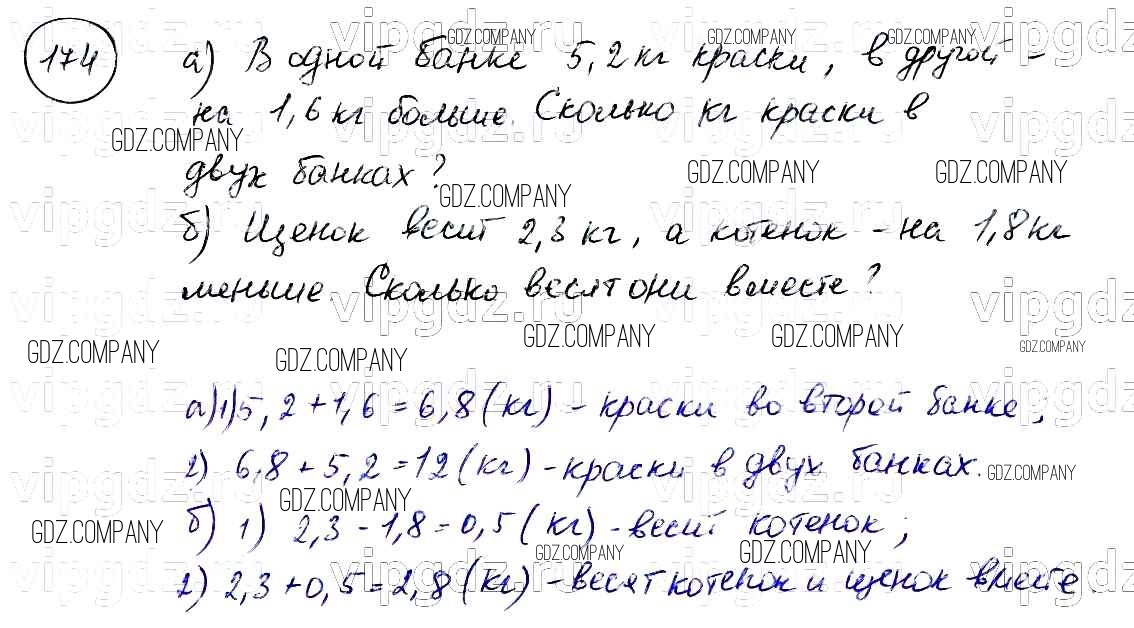 174
а) В одной банке 5,2 кг краски, в другой -
на 1,6 кг больше. Сколько кг краски в
двух банках?
б) Щенок весит 2,3 кг, а котенок - на 1,8 кг
меньше. Сколько весят они вместе?
а) 1) 5,2 + 1,6 = 6,8 (кг) - краски во второй банке;
2) 6,8 + 5,2 = 12 (кг) - краски в двух банках.
б) 1) 2,3 - 1,8 = 0,5 (кг) - весит котенок;
2) 2,3 + 0,5 = 2,8 (кг) - весят котенок и щенок вместе.
GDZ.COMPANY
vipgdz.ru